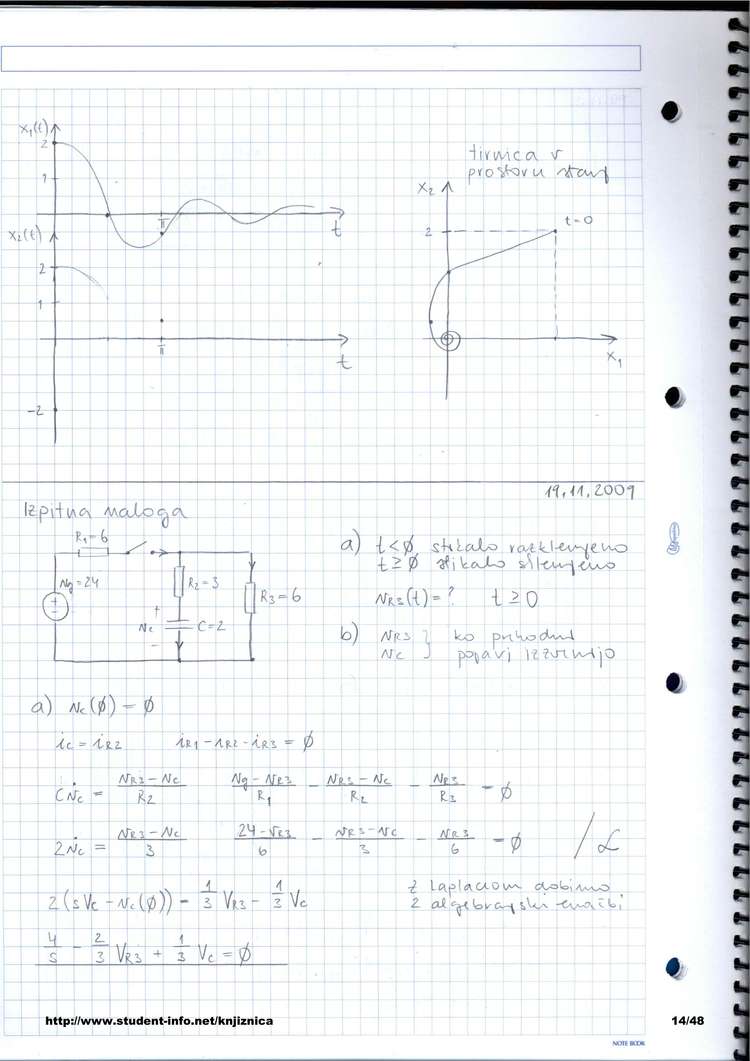 x₁(t)
2
1
π
t
x₂(t)
2
1
π
t
-2
tirnica v
prostoru stanj
x₂
t=0
2
x₁
19.11.2009
Izpitna naloga
R₁=6
Ng=24
R₂=3
R₃=6
+
Nc C=2
-
a) t<∅ stikalo razklenjeno
t≥∅ stikalo sklenjeno
NR3(t)=? t≥0
b) NR3 } ko prehodni
Nc } pojavi izzvenijo
a) Nc(∅) = ∅
ic = iR2 iR1 - iR2 - iR3 = ∅
CṄc = (NR3-Nc)/R2 (Ng-NR3)/R1 - (NR3-Nc)/R2 - NR3/R3 = ∅
2Ṅc = (NR3-Nc)/3 (24-NR3)/6 - (NR3-Nc)/3 - NR3/6 = ∅ / ℒ
2(sVc - Nc(∅)) = 1/3 VR3 - 1/3 Vc
z Laplaceom dobimo
2 algebrajski enačbi
4/s - 2/3 VR3 + 1/3 Vc = ∅
http://www.student-info.net/knjiznica
14/48
NOTE BOOK